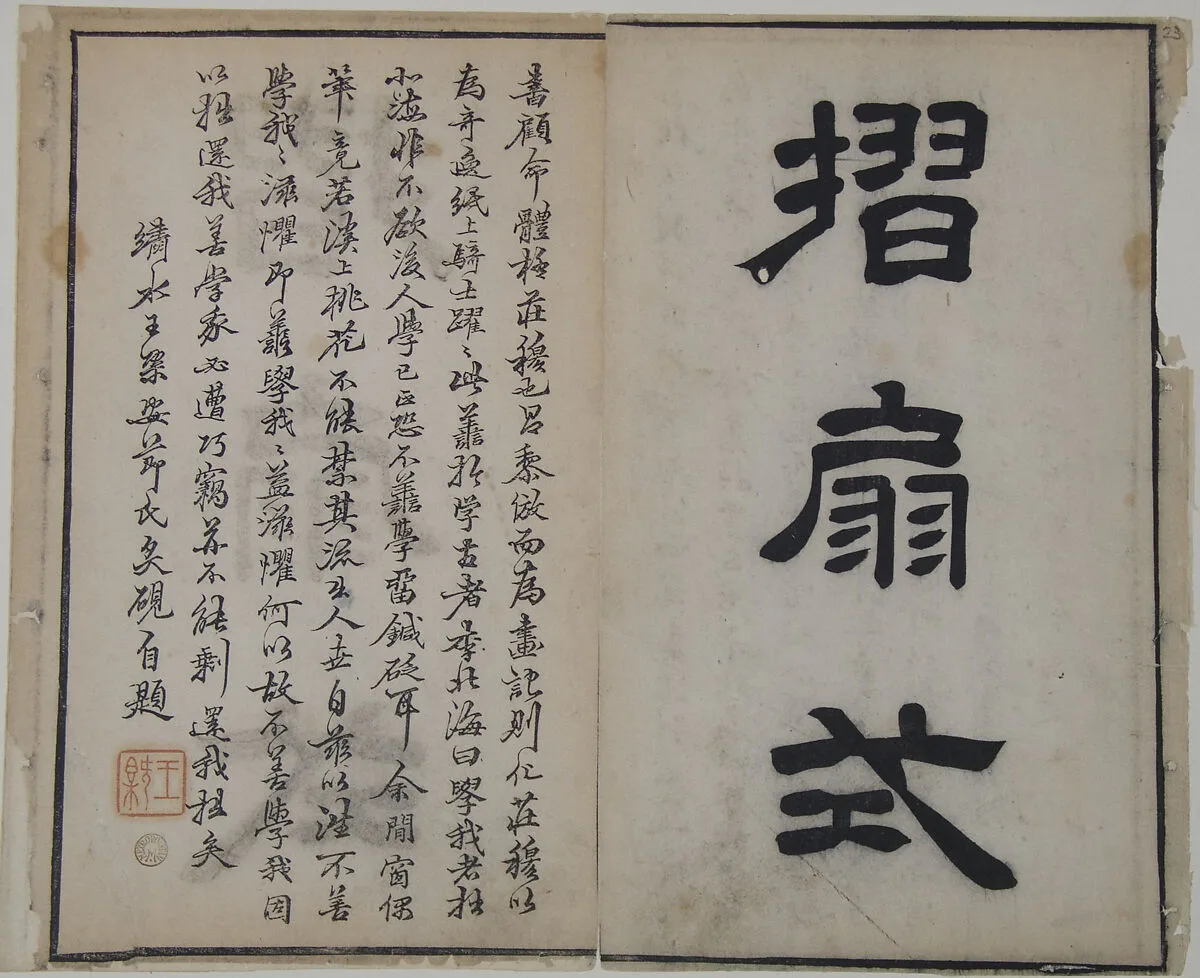 摺扇式
書顧命體極莊穆也呂黎倣而為畫記則化莊穆以
為奇逸紙上騎士躍〻此善於学古者李北海曰學我者拙
北海非不欲後人學已正恐不善學留鍼砭耳余閒窗偶
筆竟若溪上桃花不能禁其流出人世自茲以往不善
學我〻滋懼即善學我〻益滋懼何以故不善學我因
以拙還我善学我必遭巧竊并不能剩還我拙矣
繡水王槩安節氏炙硯自題
王槩
23